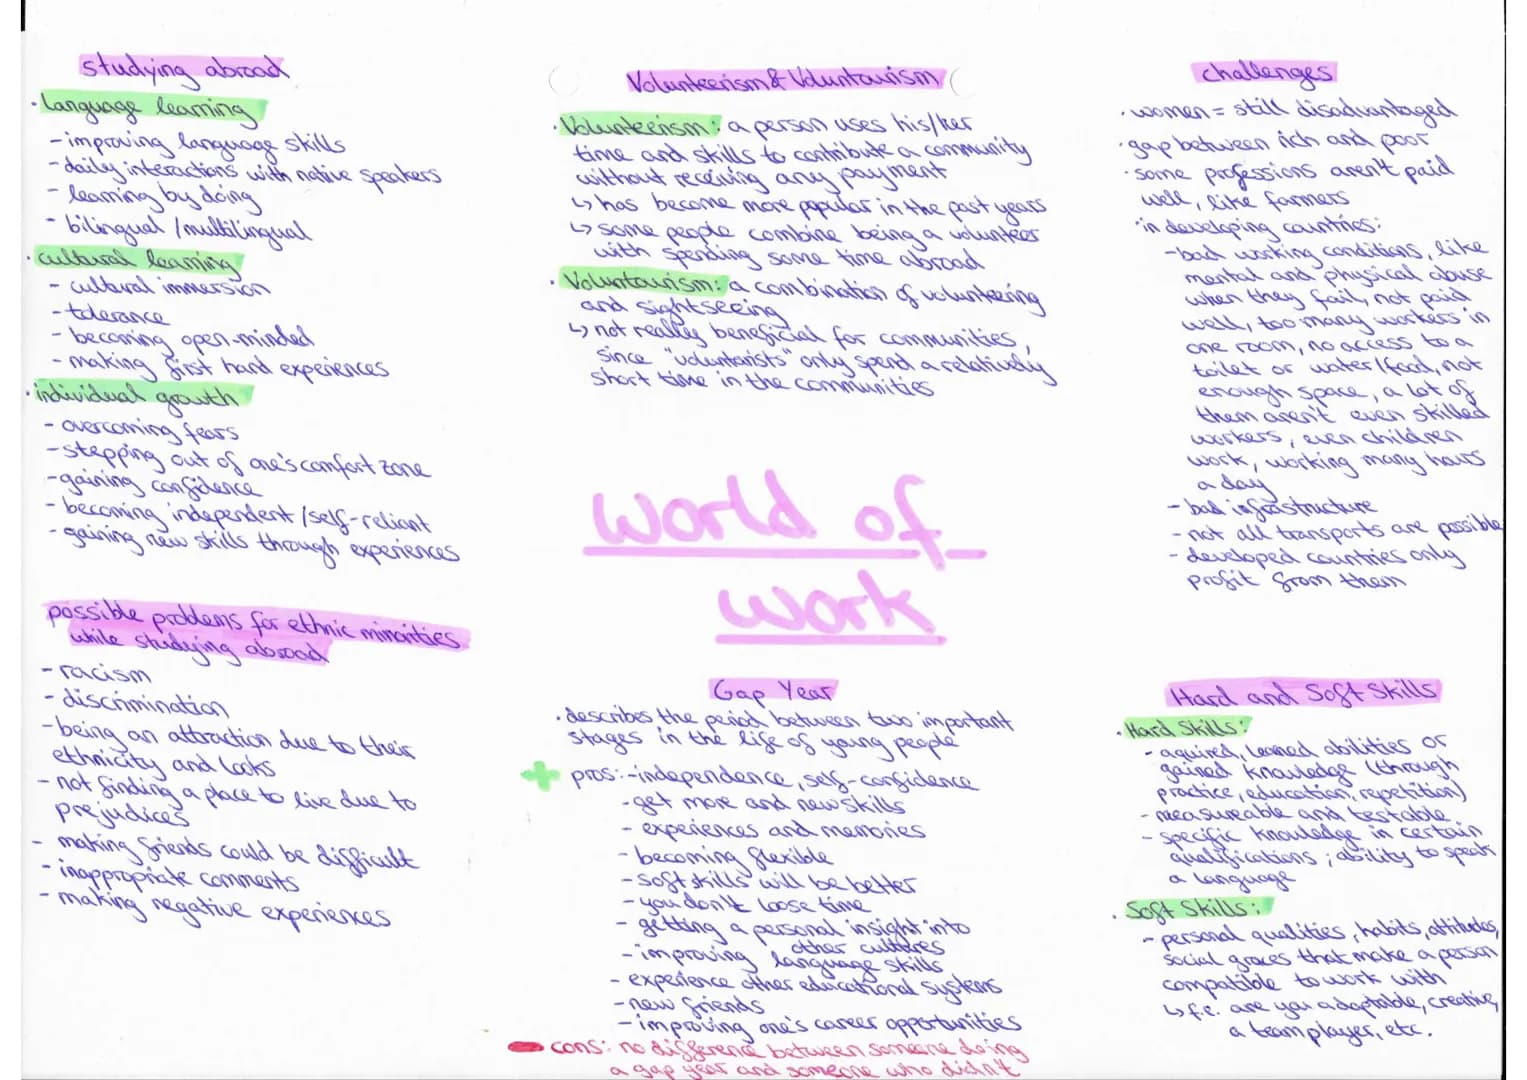 studying abroad
· language learning
- improving language skills
- daily interactions with native speakers
- learning by doing
- bilingual / multilingual
· cultural learning
- cultural immersion
- tolerance
- becoming open-minded
- making first hand experiences
· individual growth
- overcoming fears
- stepping out of one's comfort zone
- gaining confidence
- becoming independent / self-reliant
- gaining new skills through experiences
possible problems for ethnic minorities
while studying abroad
- racism
- discrimination
- being an attraction due to their
ethnicity and looks
- not finding a place to live due to
prejudices
- making friends could be difficult
- inappropriate comments
- making negative experiences
Volunteerism & Voluntourism
· Volunteerism: a person uses his/her
time and skills to contribute a community
without receiving any payment
↳ has become more popular in the past years
↳ some people combine being a volunteer
with spending some time abroad
· Voluntourism: a combination of volunteering
and sightseeing
↳ not really beneficial for communities,
since "voluntarists" only spend a relatively
short time in the communities
world of
work
Gap Year
· describes the period between two important
stages in the life of young people
+ pros: - independence, self-confidence
- get more and new skills
- experiences and memories
- becoming flexible
- soft skills will be better
- you don't loose time
- getting a personal insight into
other cultures
- improving language skills
- experience other educational systems
- new friends
- improving one's career opportunities
- cons: no difference between someone doing
a gap year and someone who didn't
challenges
· women = still disadvantaged
· gap between rich and poor
· some professions aren't paid
well, like farmers
· in developing countries:
- bad working conditions, like
mental and physical abuse
when they fail, not paid
well, too many workers in
one room, no access to a
toilet or water/food, not
enough space, a lot of
them aren't even skilled
workers, even children
work, working many hours
a day
- bad infrastructure
- not all transports are possible
- developed countries only
profit from them
Hard and Soft Skills
· Hard Skills:
- aquired, learned abilities or
gained knowledge (through
practice, education, repetition)
- measureable and testable
- specific knowledge in certain
qualifications; ability to speak
a language
· Soft Skills:
- personal qualities, habits, attitudes,
social graces that make a person
compatible to work with
↳ f.e. are you adaptable, creative,
a teamplayer, etc.